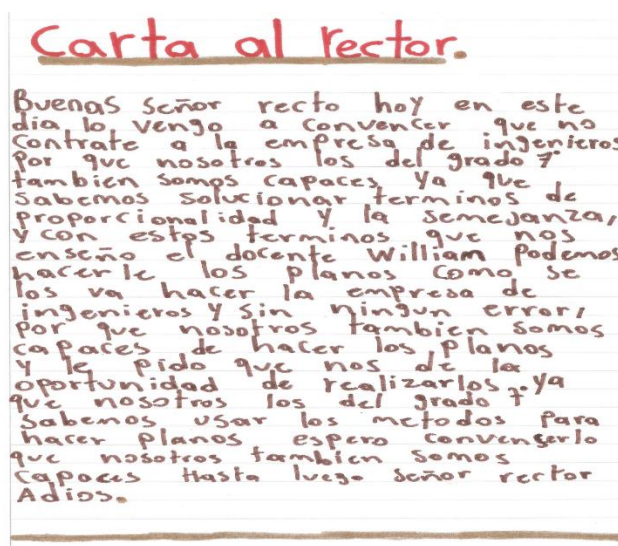 Carta al rector.
Buenas señor recto hoy en este
dia lo vengo a convencer que no
contrate a la empresa de ingenieros
por que nosotros los del grado 7°
tambien somos capaces Ya que
sabemos solucionar terminos de
proporcionalidad y la semejanza,
y con estos terminos que nos
enseño el docente William Podemos
hacerle los planos como se
los va hacer la empresa de
ingenieros y sin ningun error,
por que nosotros tambien somos
capaces de hacer los planos
y le pido que nos de la
oportunidad de realizarlos. ya
que nosotros los del grado 7
sabemos usar los metodos para
hacer planos espero convenserlo
que nosotros tambien somos
capaces Hasta luego señor rector
Adios.